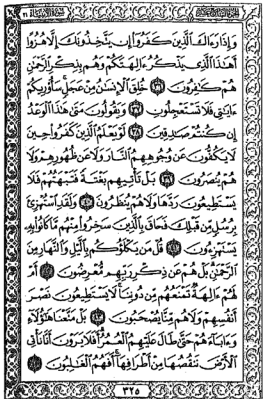 الجزء السابع عشر سورة الأنبياء ٢١
وَإِذَا رَءَاكَ ٱلَّذِينَ كَفَرُوٓا۟ إِن يَتَّخِذُونَكَ إِلَّا هُزُوًا
أَهَٰذَا ٱلَّذِى يَذْكُرُ ءَالِهَتَكُمْ وَهُم بِذِكْرِ ٱلرَّحْمَٰنِ
هُمْ كَٰفِرُونَ ﴿٣٦﴾ خُلِقَ ٱلْإِنسَٰنُ مِنْ عَجَلٍ سَأُو۟رِيكُمْ
ءَايَٰتِى فَلَا تَسْتَعْجِلُونِ ﴿٣٧﴾ وَيَقُولُونَ مَتَىٰ هَٰذَا ٱلْوَعْدُ
إِن كُنتُمْ صَٰدِقِينَ ﴿٣٨﴾ لَوْ يَعْلَمُ ٱلَّذِينَ كَفَرُوا۟ حِينَ
لَا يَكُفُّونَ عَن وُجُوهِهِمُ ٱلنَّارَ وَلَا عَن ظُهُورِهِمْ وَلَا
هُمْ يُنصَرُونَ ﴿٣٩﴾ بَلْ تَأْتِيهِم بَغْتَةً فَتَبْهَتُهُمْ فَلَا
يَسْتَطِيعُونَ رَدَّهَا وَلَا هُمْ يُنظَرُونَ ﴿٤٠﴾ وَلَقَدِ ٱسْتُهْزِئَ
بِرُسُلٍ مِّن قَبْلِكَ فَحَاقَ بِٱلَّذِينَ سَخِرُوا۟ مِنْهُم مَّا كَانُوا۟ بِهِۦ
يَسْتَهْزِءُونَ ﴿٤١﴾ قُلْ مَن يَكْلَؤُكُم بِٱلَّيْلِ وَٱلنَّهَارِ مِنَ
ٱلرَّحْمَٰنِ بَلْ هُمْ عَن ذِكْرِ رَبِّهِم مُّعْرِضُونَ ﴿٤٢﴾ أَمْ
لَهُمْ ءَالِهَةٌ تَمْنَعُهُم مِّن دُونِنَا لَا يَسْتَطِيعُونَ نَصْرَ
أَنفُسِهِمْ وَلَا هُم مِّنَّا يُصْحَبُونَ ﴿٤٣﴾ بَلْ مَتَّعْنَا هَٰٓؤُلَآءِ
وَءَابَآءَهُمْ حَتَّىٰ طَالَ عَلَيْهِمُ ٱلْعُمُرُ أَفَلَا يَرَوْنَ أَنَّا نَأْتِى
ٱلْأَرْضَ نَنقُصُهَا مِنْ أَطْرَافِهَآ أَفَهُمُ ٱلْغَٰلِبُونَ ﴿٤٤﴾
٣٢٥